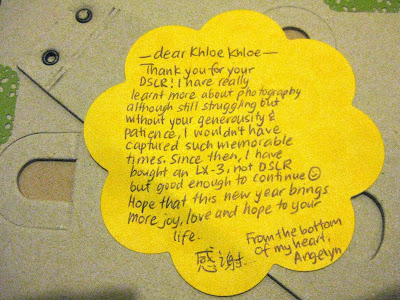 — dear Khloe Khloe —
Thank you for your
DSLR! I have really
learnt more about photography
although still struggling but
without your generousity &
patience, I wouldn't have
captured such memorable
times. Since then, I have
bought an LX-3, not DSLR
but good enough to continue ☺
Hope that this new year brings
more joy, love and hope to your
life.
From the bottom
of my heart,
Angelyn
感谢...